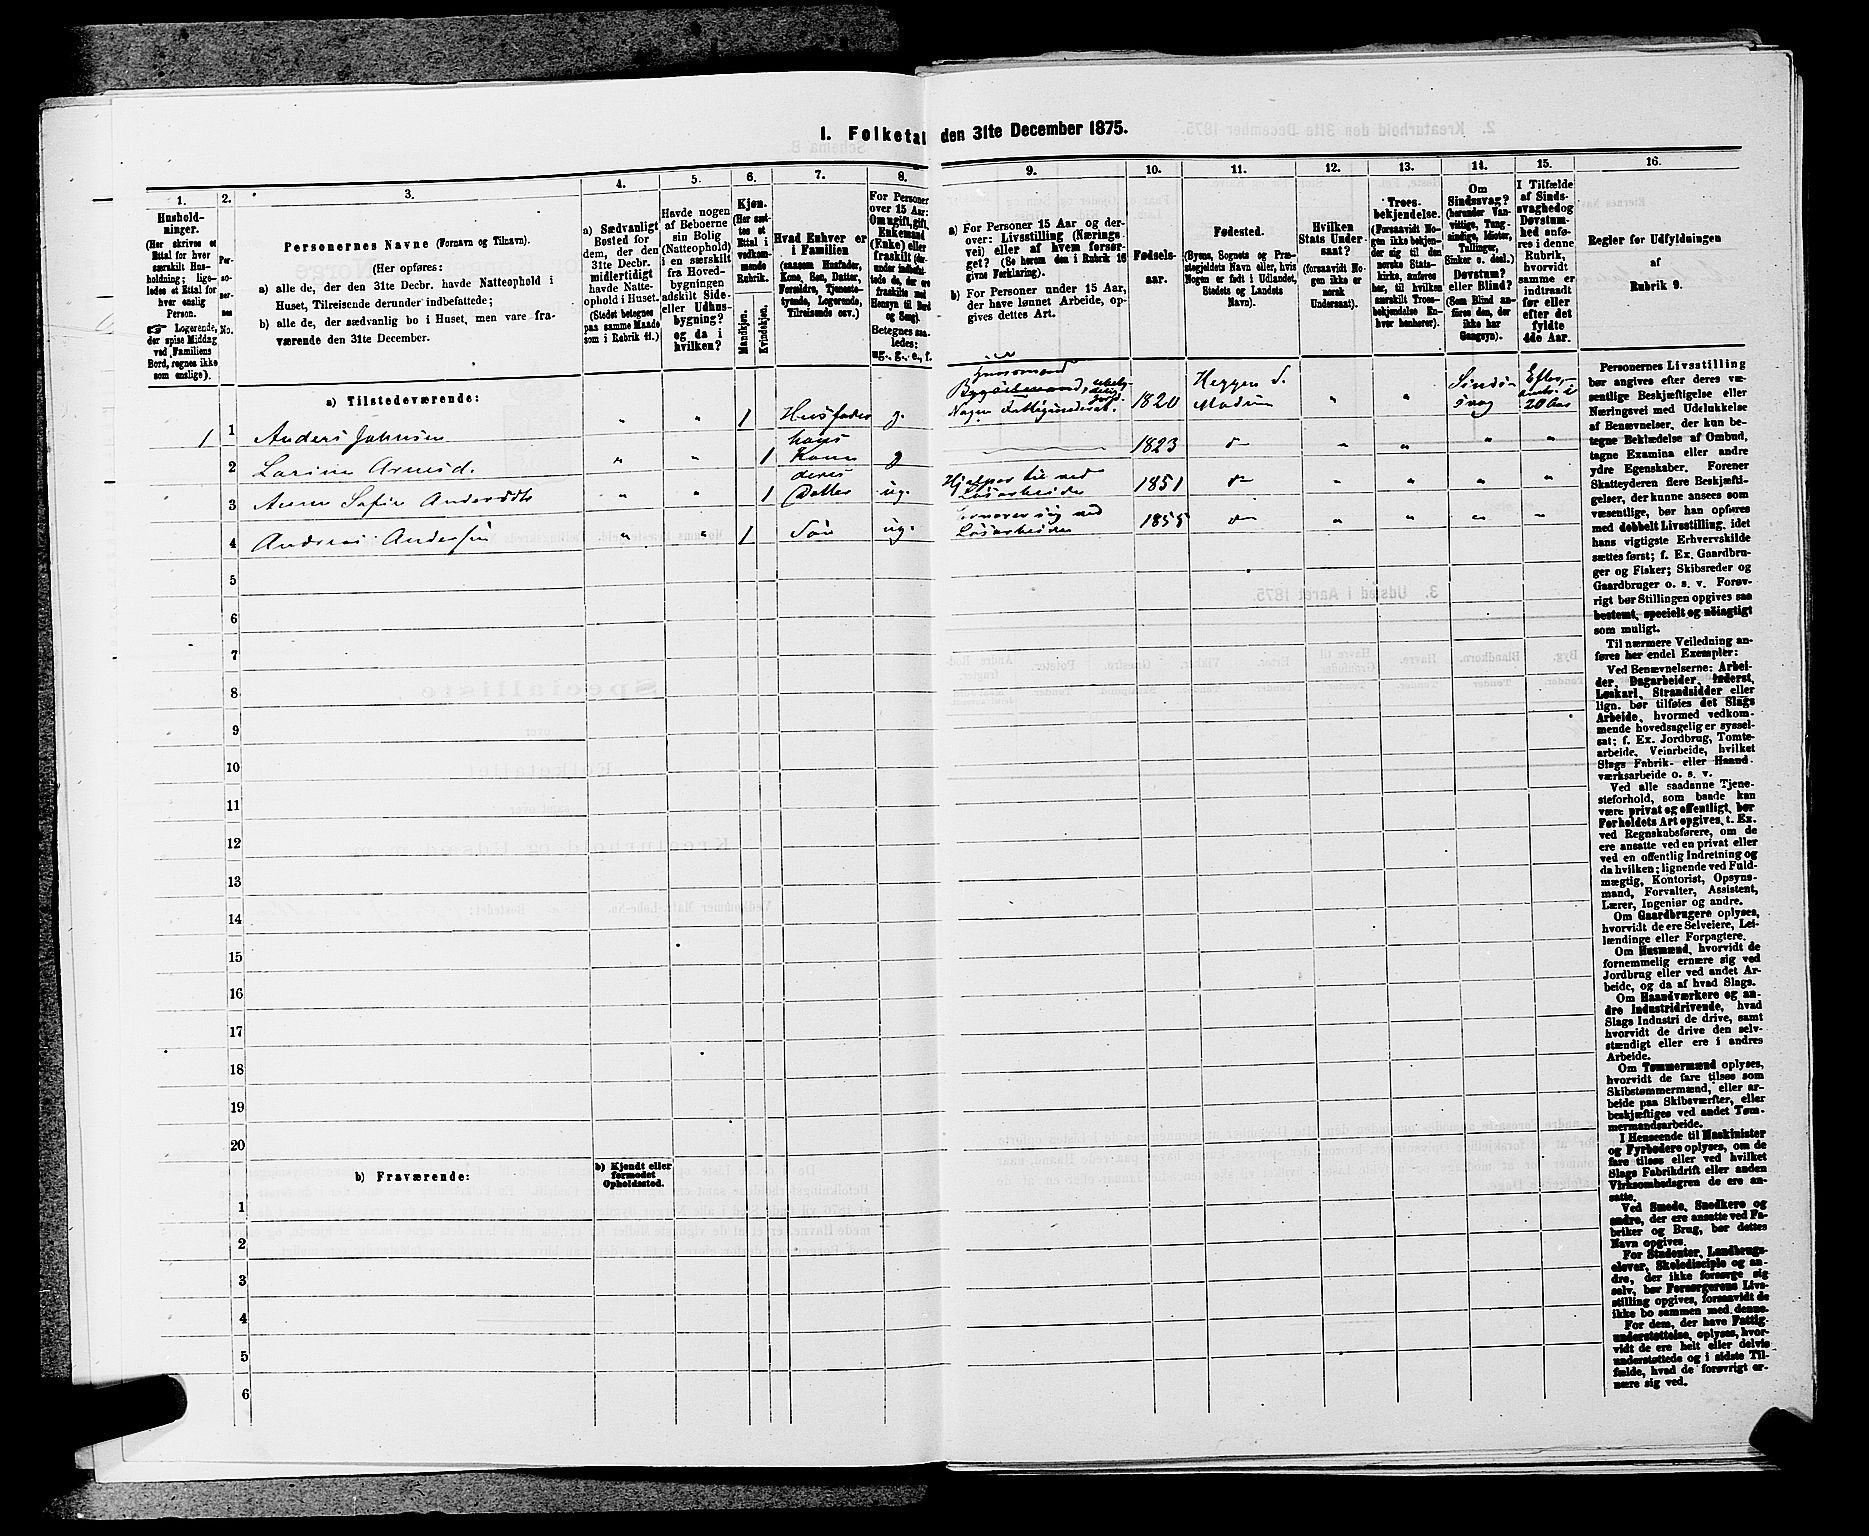 I. Folketal den 31te December 1875.
1. 2. 3. 4. 5. 6. 7. 8. 9. 10. 11. 12. 13. 14. 15. 16.
Husholdninger.
(Her skrives et
Ettal for hver
særskilt Hus-
holdning; lige-
ledes et Ettal for
hver enslig
Person.
☞ Logerende,
der spise Middag
ved Familiens
Bord, regnes ikke
som enslige).
Per-
so-
ner-
nes
No.
Personernes Navne (Fornavn og Tilnavn).
(Her opføres:
a) alle de, der den 31te Decbr. havde Natteophold i
Huset, Tilreisende derunder indbefattede;
b) alle de, der sædvanlig bo i Huset, men vare fra-
værende den 31te December.
a) Sædvanligt
Bosted for
dem, der den
31te Decbr.
midlertidigt
havde Natte-
ophold i Huset.
(Stedet betegnes
paa samme Maade
som i Rubrik 11.)
Havde nogen
af Beboerne
sin Bolig
(Natteophold)
i en særskilt
fra Hoved-
bygningen
adskilt Side-
eller Udhus-
bygning?
og da i
hvilken?
Kjøn.
(Her sæt-
tes et
Ettal i
vedkom-
mende
Rubrik.
Mandkjøn.
Kvindekjøn.
Hvad Enhver er
i Familien
(saasom Husfader,
Kone, Søn, Datter,
Forældre, Tjeneste-
tyende, Logerende,
Tilreisende osv.)
For Personer
over 15 Aar:
Om ugift, gift,
Enkemand
(Enke) eller
fraskilt (der-
under indbefat-
tede de, der ere
fraskilte med
Hensyn til Bord
og Seng).
Betegnes saa-
ledes:
ug., g., e., f.
a) For Personer 15 Aar og der-
over: Livsstilling (Nærings-
vei) eller af hvem forsør-
get? (Se herom den i Rubrik 16
givne Forklaring).
b) For Personer under 15 Aar,
der have lønnet Arbeide, op-
gives dettes Art.
Fødsels-
aar.
Fødested.
(Byens, Sognets og Præ-
stegjeldets Navn eller, hvis
Nogen er født i Udlandet,
Stedets og Landets
Navn).
Hvilken
Stats Under-
saat?
(forsaavidt No-
gen ikke er
norsk
Undersaat).
Troes-
bekjendelse.
(Forsaavidt No-
gen ikke bekjen-
der sig til den
norske Stats-
kirke, anføres
her, til hvilken
særskilt Troes-
bekjendelse En-
hver henhører).
Om
Sindssvag?
(herunder Van-
vittige, Tung-
sindige, Idioter,
Tullinger,
Sinker o. desl.)
Døvstum?
eller Blind?
(Som Blind an-
føres den, der
ikke har
Gangsyn).
I Tilfælde
af Sinds-
svaghedog
Døvstum-
hed anfø-
res i denne
Rubrik,
hvorvidt
samme er
indtraadt
før eller
efter det
fyldte
4de Aar.
Regler for Udfyldningen
af
Rubrik 9.
a) Tilstedeværende:
1 1 Anders Johnsen „ „ 1 Husfader g. 1820 Heggen S. Modum „ „ Sinds- svag 20 Aar
2 Larine Arnesd. „ „ 1 hans Kone g 1823 do „ „ „ „
3 Anne Sofie Andersdtr „ „ 1 deres Datter ug. Hjælper til ved Løsarbeider 1851 do „ „ „ „
4 Andreas Andersen „ „ 1 Søn ug. Ernærer sig ved Løsarbeider 1855 do „ „ „ „
5
6
7
8
9
10
11
12
13
14
15
16
17
18
19
20
b) Fraværende:
b) Kjendt eller
formodet
Opholdssted.
1
2
3
4
5
6
Personernes Livsstilling
bør angives efter deres væ-
sentlige Beskjæftigelse eller
Næringsvei med Udelukkelse
af Benævnelser, der kun be-
tegne Beklædelse af Ombud,
tagne Examina eller andre
ydre Egenskaber. Forener
Skatteyderen flere Beskjæfti-
gelser, der kunne ansees som
væsentlige, bør han opføres
med dobbelt Livsstilling, idet
hans vigtigste Erhvervskilde
sættes først; f. Ex. Gaardbru-
ger og Fisker; Skibsreder og
Gaardbruger o. s. v. Forøv-
rigt bør Stillingen opgives saa
bestemt, specielt og nöiagtigt
som muligt.
Til nærmere Veiledning an-
føres her endel Exempler:
Ved Benævnelserne: Arbei-
der, Dagarbeider, Inderst,
Løskarl, Strandsidder eller
lign. bør tilføies det Slags
Arbeide, hvormed vedkom-
mende hovedsagelig er syssel-
sat; f. Ex. Jordbrug, Tomte-
arbeide, Veiarbeide, hvilket
Slags Fabrik- eller Haand-
værksarbeide o. s. v.
Ved alle saadanne Tjene-
steforhold, som baade kan
være privat og offentligt, bør
Forholdets Art opgives, t. Ex.
ved Regnskabsførere, om de
ere ansatte ved en privat eller
ved en offentlig Indretning og
da hvilken; lignende ved Fuld-
mægtig, Kontorist, Opsyns-
mand, Forvalter, Assistent,
Lærer, Ingeniør og andre.
Om Gaardbrugere oplyses,
hvorvidt de ere Selveiere, Lei-
lændinge eller Forpagtere.
Om Husmænd, hvorvidt de
fornemmelig ernære sig ved
Jordbrug eller ved andet Ar-
beide, og da af hvad Slags.
Om Haandværkere og an-
dre Industridrivende, hvad
Slags Industri de drive, samt
hvorvidt de drive den selv-
stændigt eller ere i andres
Arbeide.
Om Tømmermænd oplyses,
hvorvidt de fare tilsøs som
Skibstømmermænd, eller ar-
beide paa Skibsværfter, eller
beskjæftiges ved andet Tøm-
mermandsarbeide.
I Henseende til Maskinister
og Fyrbødere oplyses, om de
fare tilsøs eller ved hvilket
Slags Fabrikdrift eller anden
Virksomhedsgren de ere an-
satte.
Ved Smede, Snedkere og
andre, der ere ansatte ved Fa-
briker og Brug, bør dettes
Navn opgives.
For Studenter, Landbrugs-
elever, Skoledisciple og an-
dre, der ikke forsørge sig
selv, bør Forsørgerens Livs-
stilling opgives, forsaavidt de
ikke bo sammen med denne.
For dem, der have Fattig-
understøttelse, oplyses, hvor-
vidt de ere helt eller delvis
understøttede og i sidste Til-
fælde, hvad de forøvrigt er-
nære sig ved.